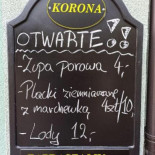 ·KORONA·
OTWARTE!
- Zupa porowa 4,-
- Placki ziemniaczane
z marchewką 4szt/10,-
- Lody 12,-